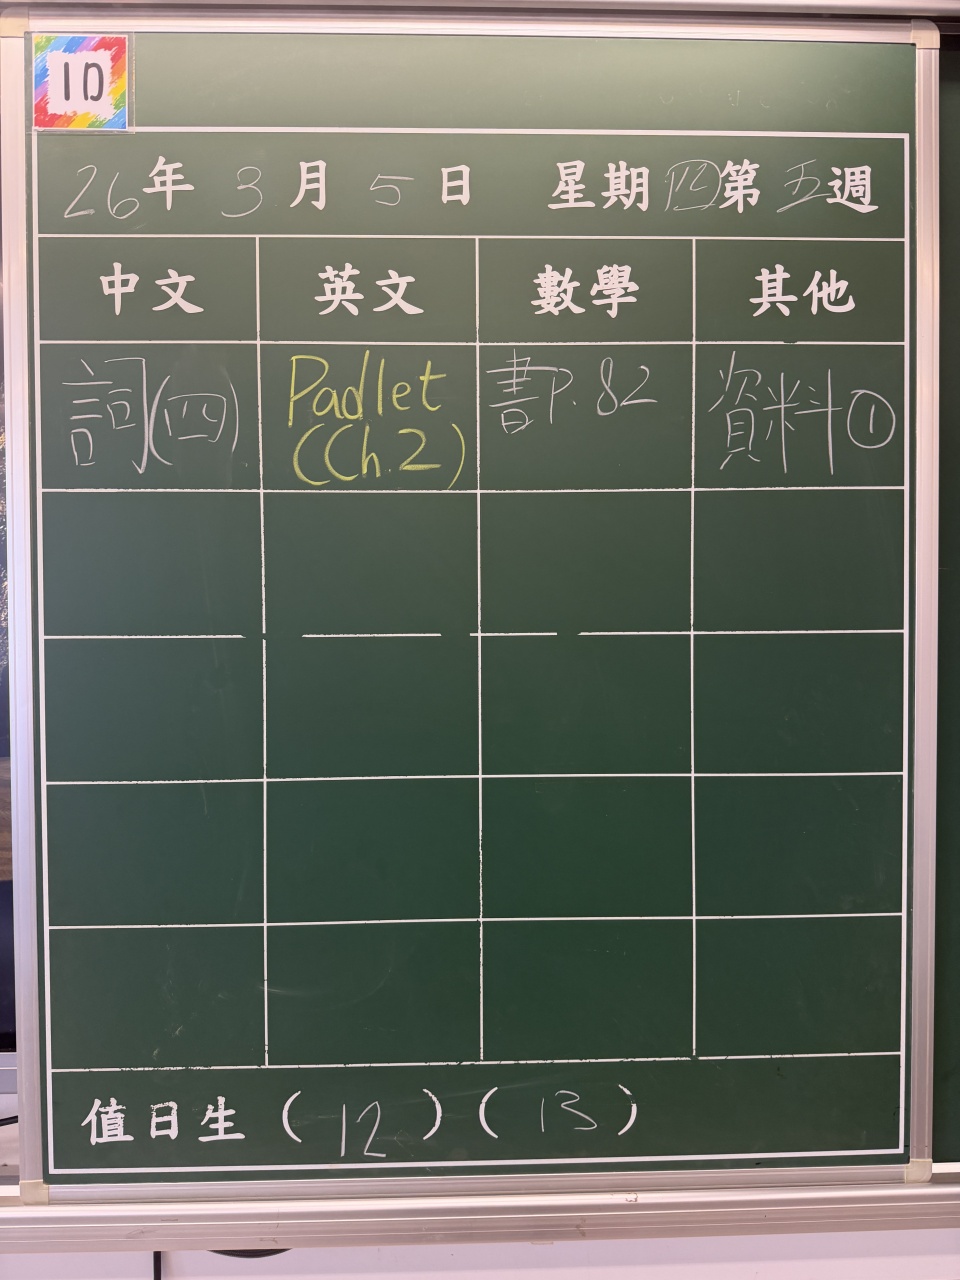 1D
26年 3月 5日 星期四第五週
中文 英文 數學 其他
詞(四) Padlet (Ch.2) 書P.82 資料①
值日生 (12) (13)